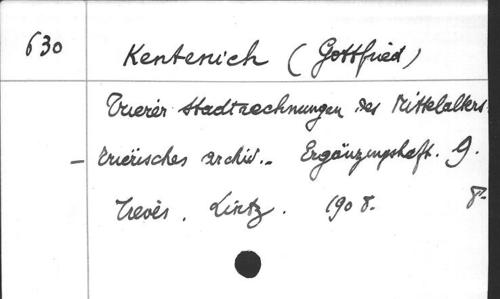 630 Kentenich (Gottfried)
Trierer Stadtrechnungen des Mittelalters.
- Trierisches Archiv.. Ergänzungsheft. 9.
Trèves. Lintz. 1908. 8º